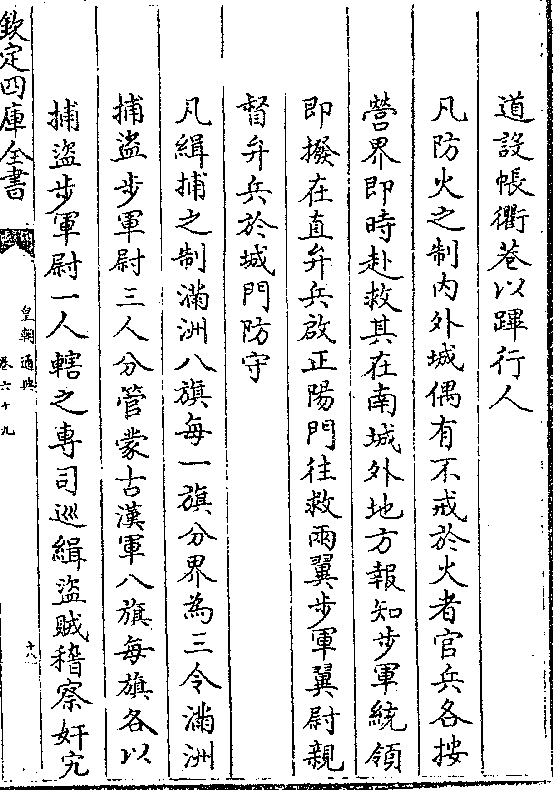 道設帳衢巷以蹕行人
凡防火之制内外城偶有不戒於火者官兵各按
營界即時赴救其在南城外地方報知步軍統領
即撥在直弁兵啟正陽門往救兩翼步軍翼尉親
督弁兵於城門防守
凡緝捕之制滿洲八旗每一旗分界為三令滿洲
捕盗步軍尉三人分管蒙古漢軍八旗每旗各以
捕盗步軍尉一人轄之專司巡緝盜賊稽察奸宄
欽定四庫全書
皇朝通典
卷六十九
十八